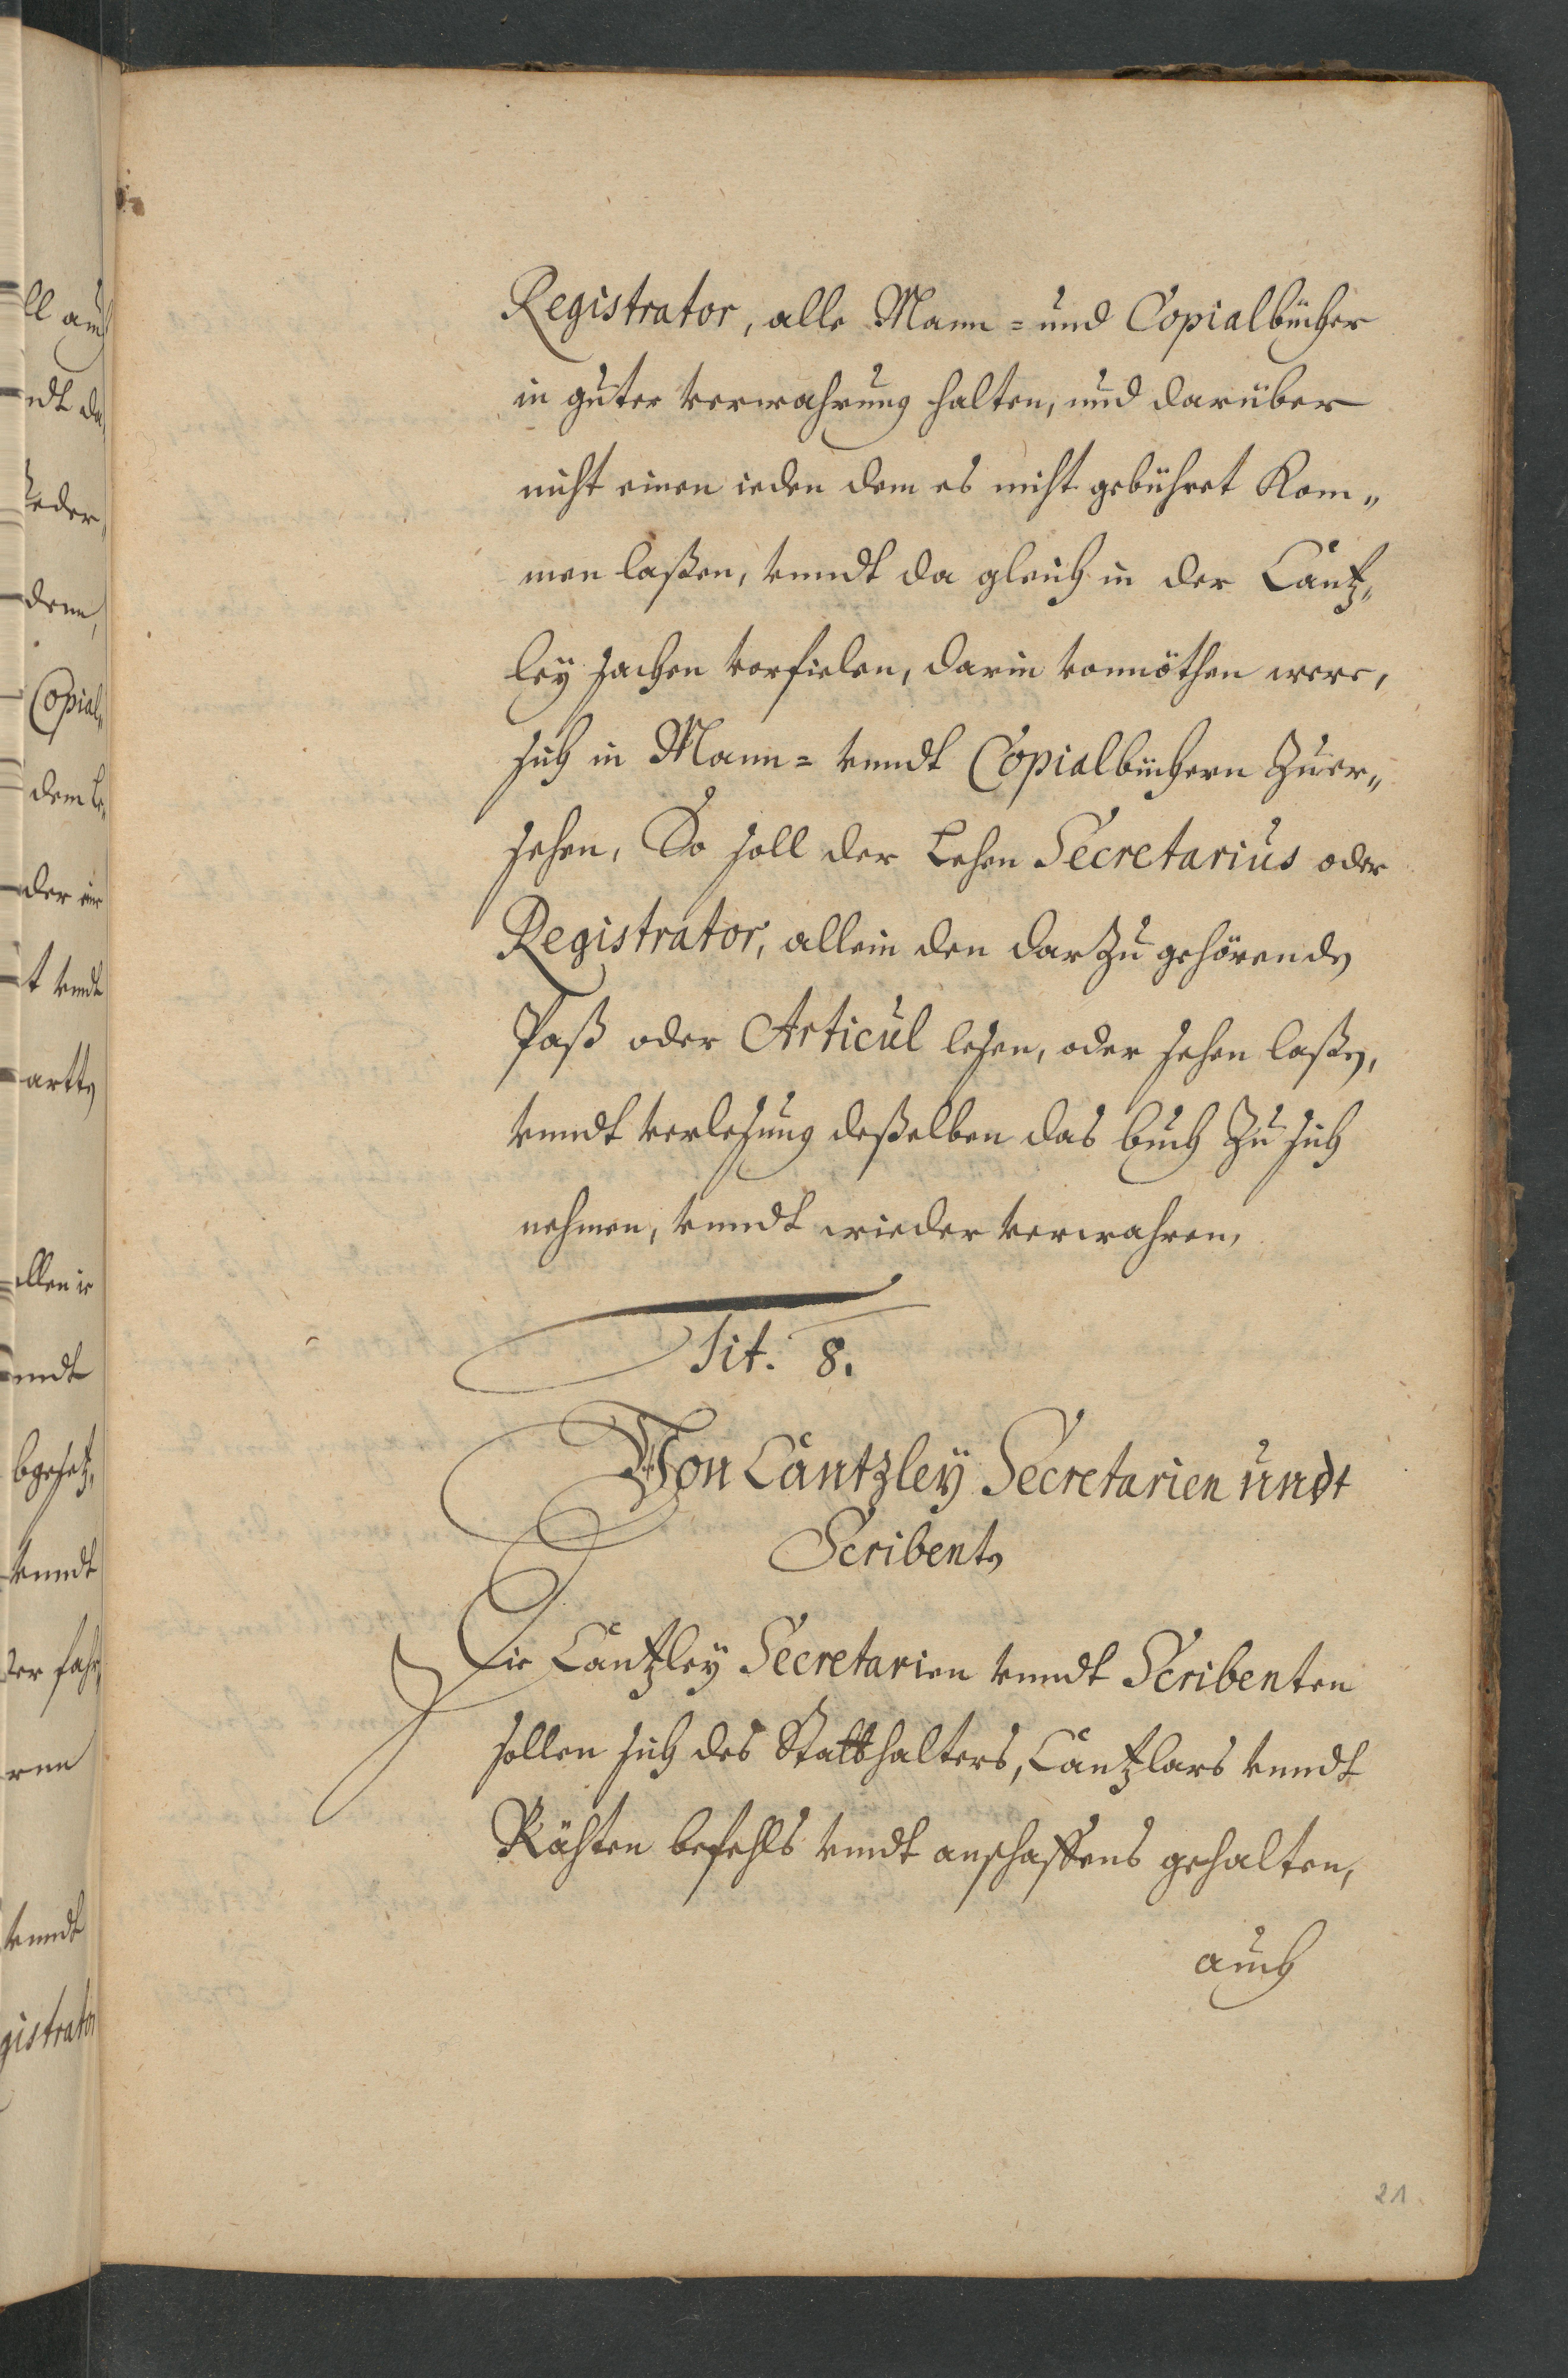 Registrator, alle Mann= und Copialbücher
in guter verwahrung halten, und darüber
nicht einen ieden dem es nicht gebühret Kom„
men laßen, vnndt da gleich in der Cantz„
ley sachen vorfielen, darin vonnöthen were,
sich in Mann= vnndt Copialbüchern Zuer„
sehen, So soll der Lehen Secretarius oder
Registrator, allein den dar Zu gehörenden
Paß oder Articul lesen, oder sehen laßen,
vnndt verlesung deßelben das buch Zu sich
nehmen, vnndt wieder verwahren,
Tit. 8.
Von Cantzley Secretarien undt
Scribenten
Die Cantzley Secretarien vnndt Scribenten
sollen sich des Statthalters, Cantzlars vnndt
Rähten befehls vndt anschaffens gehalten,
auch
21